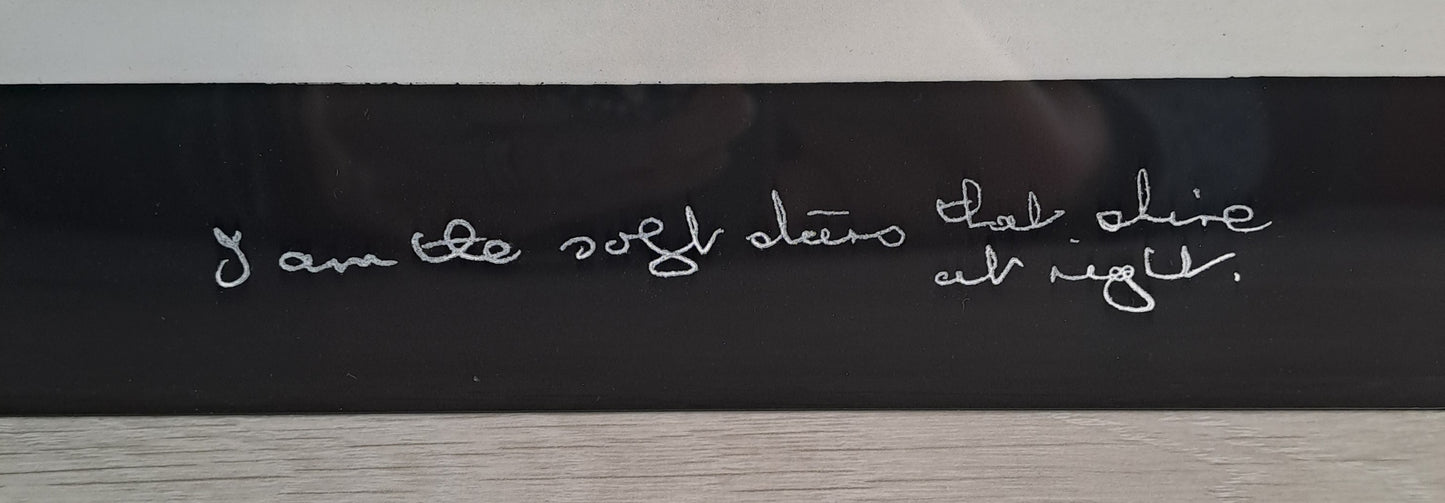 I am the soft stars that shine
at night.